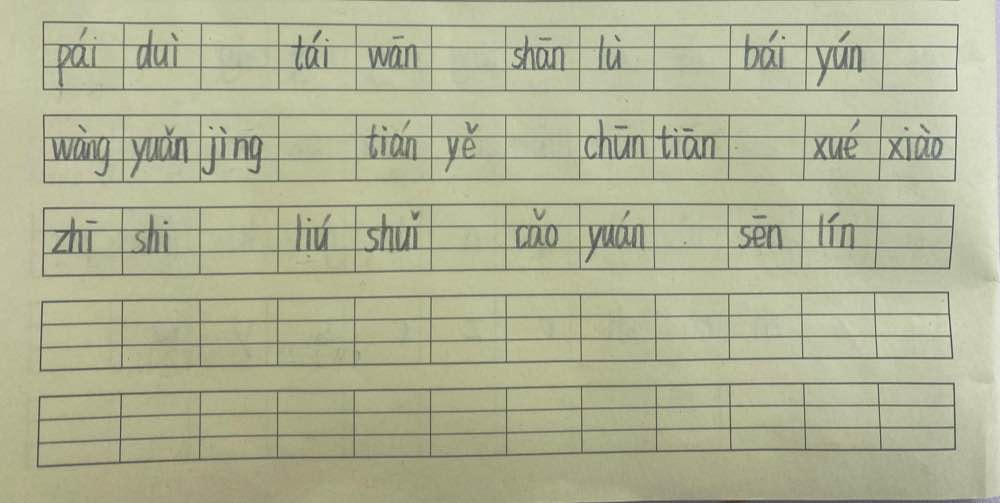 pái duì tái wān shān lù bái yún
wàng yuǎn jìng tián yě chūn tiān xué xiào
zhī shi liú shuǐ cǎo yuán sēn lín